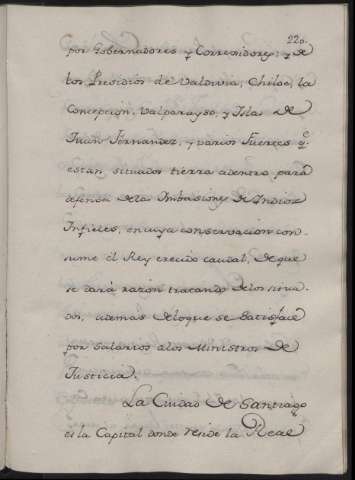 220.
por Gobernadores y Corregidores; y de
los Presidios de Valdivia, Chiloe, la
Concepcion, Valparayso, y Isla de
Juan Fernandez, y varios Fuertes q.e
estan situados tierra adentro para
defensa de las Imbasiones de Indios
Infieles, en cuya conservacion con-
sume el Rey crecido caudal, de que
se dará razon tratando de los situa-
dos, ademas de loque se satisface
por salarios alos Ministros de
Justicia.
La Ciudad de Santiago
es la Capital donde reside la Real